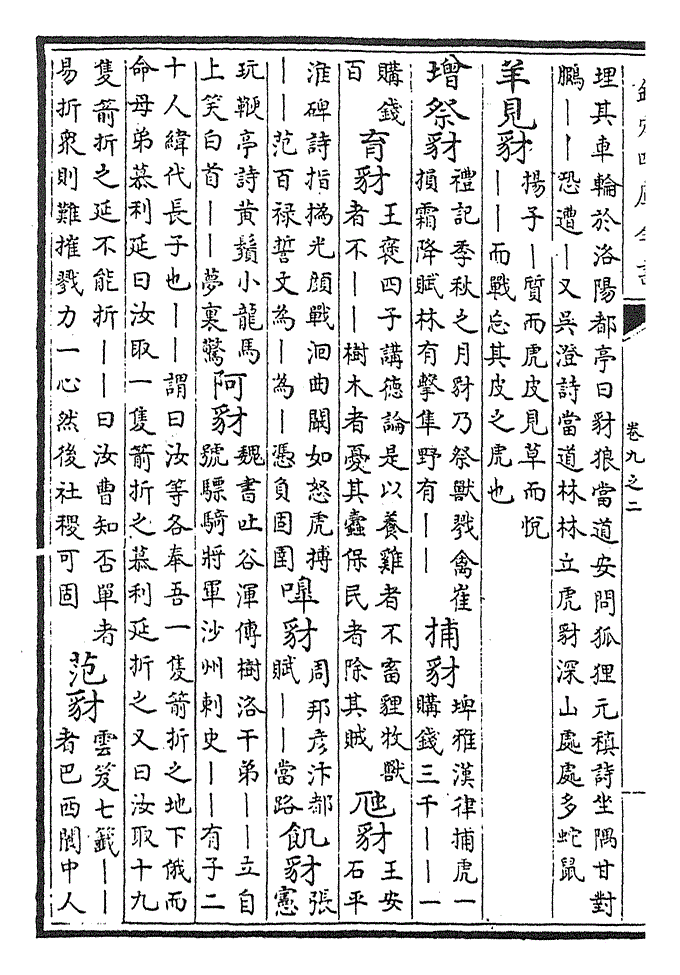 欽定四庫全書
卷九之二
埋其車輪於洛陽都亭曰豺狼當道安問狐狸元稹詩坐隅甘對
鵬――恐遭―又吳澄詩當道林林立虎豺深山處處多蛇鼠
羊見豺
揚子―質而虎皮見草而悅
――而戰忘其皮之虎也
增祭豺
禮記季秋之月豺乃祭獸戮禽崔
損霜降賦林有擊隼野有――
捕豺
埤雅漢律捕虎一
購錢三千―――一
購錢
百
育豺
王褒四子講德論是以養雞者不畜貍牧獸
者不――樹木者憂其蠹保民者除其賊
虺豺
王安
石平
淮碑詩指撝光顔戰洄曲闞如怒虎摶
――范百禄誓文為―為―憑負固圉
嘷豺
周邦彥汴都
賦――當路
飢豺
張
憲
玩鞭亭詩黃鬚小龍馬
上笑白首――夢裏驚
阿豺
魏書吐谷渾傳樹洛干弟――立自
號驃騎將軍沙州刺史――有子二
十人緯代長子也――謂曰汝等各奉吾一隻箭折之地下俄而
命母弟慕利延曰汝取一隻箭折之慕利延折之又曰汝取十九
隻箭折之延不能折――曰汝曹知否單者
易折衆則難摧戮力一心然後社稷可固
范豺
雲笈七籤――
者巴西閬中人